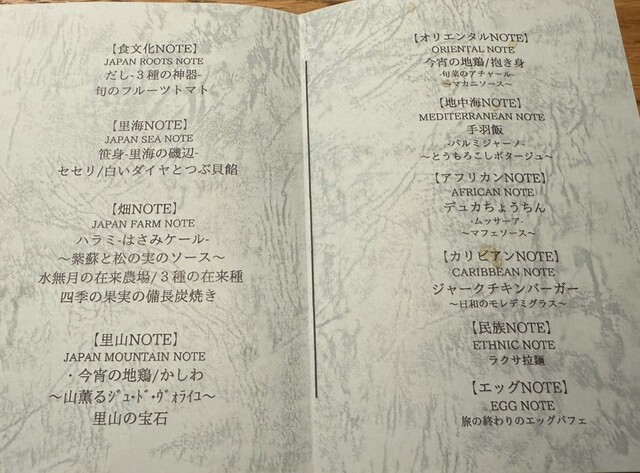 【食文化NOTE】
JAPAN ROOTS NOTE
だし-３種の神器-
旬のフルーツトマト
【里海NOTE】
JAPAN SEA NOTE
笹身-里海の磯辺-
セセリ/白いダイヤとつぶ貝餡
【畑NOTE】
JAPAN FARM NOTE
ハラミ-はさみケール-
～紫蘇と松の実のソース～
水無月の在来農場/３種の在来種
四季の果実の備長炭焼き
【里山NOTE】
JAPAN MOUNTAIN NOTE
・今宵の地鶏/かしわ
～山薫るｼﾞｭ･ﾄﾞ･ｳﾞｫﾗｲﾕ～
里山の宝石
【オリエンタルNOTE】
ORIENTAL NOTE
今宵の地鶏/抱き身
-旬菜のアチャール-
～マカニソース～
【地中海NOTE】
MEDITERRANEAN NOTE
手羽飯
-パルミジャーノ-
～とうもろこしポタージュ～
【アフリカンNOTE】
AFRICAN NOTE
デュカちょうちん
-ムッサーア-
～マフェソース～
【カリビアンNOTE】
CARIBBEAN NOTE
ジャークチキンバーガー
～日和のモレデミグラス～
【民族NOTE】
ETHNIC NOTE
ラクサ拉麺
【エッグNOTE】
EGG NOTE
旅の終わりのエッグパフェ